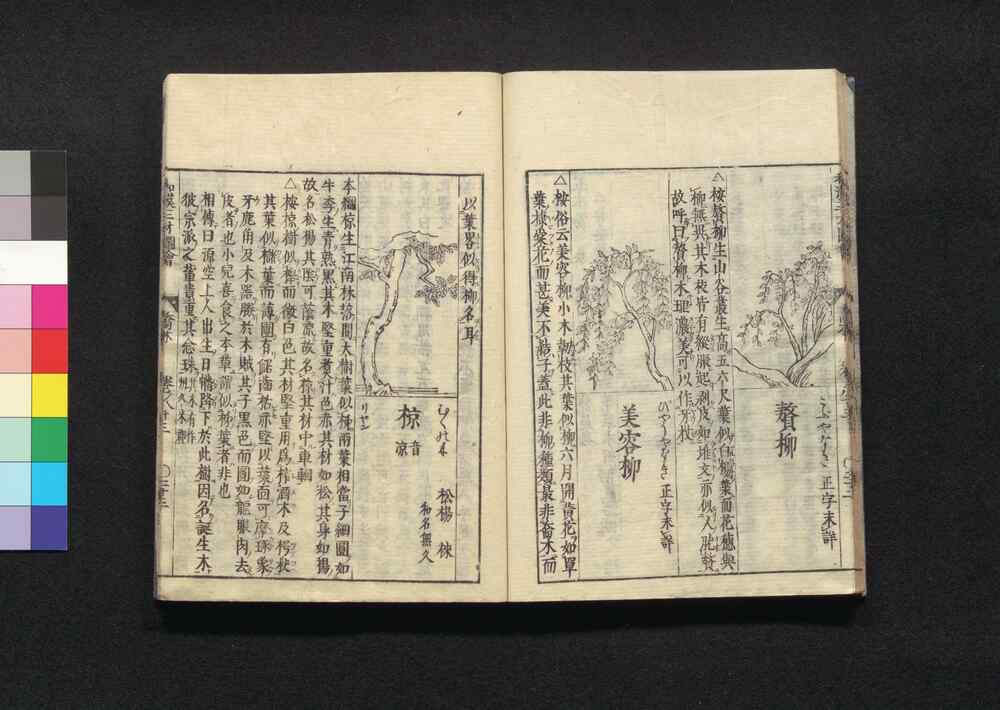 贅柳
こぶやなぎ
正字未詳
△桉贅柳生山谷叢生高五六尺葉似白楊葉而花穂與
柳無異其木枝皆有縱脈起剥皮如堆文亦似人肬贅
故呼曰贅柳木理濃美可以作牙杖
美容柳
びやうやなぎ
正字未詳
△桉俗云美容柳小木勁枝其葉似柳六月開黄花如單
葉棣棠花而甚美不結子蓋此非柳種類最非喬木而
以葉畧似得柳名耳
椋
音凉
むくのき
りやん
松楊 棶
和名無久
本綱椋生江南林落間大樹葉似柿兩葉相當子細圓如
牛李生青熟黒其木堅重煮汁色赤其材如松其身如楊
故名松楊其隂可䕃凉故名椋其材中車輞
△桉椋樹似欅而微白色其材堅重用爲榨酒木及枴杖
其葉似樬葉而薄團有鋸齒枯亦堅以葉面可磨琢象
牙鹿角及木噐勝於木賊其子黒色而圓如龍眼肉去
皮者也小兒喜食之本草謂似柿葉者非也
相傳曰源空上人出生日幡降下於此樹因名誕生木
彼宗派之輩貴重其念珠
和漢三才圖會
喬木